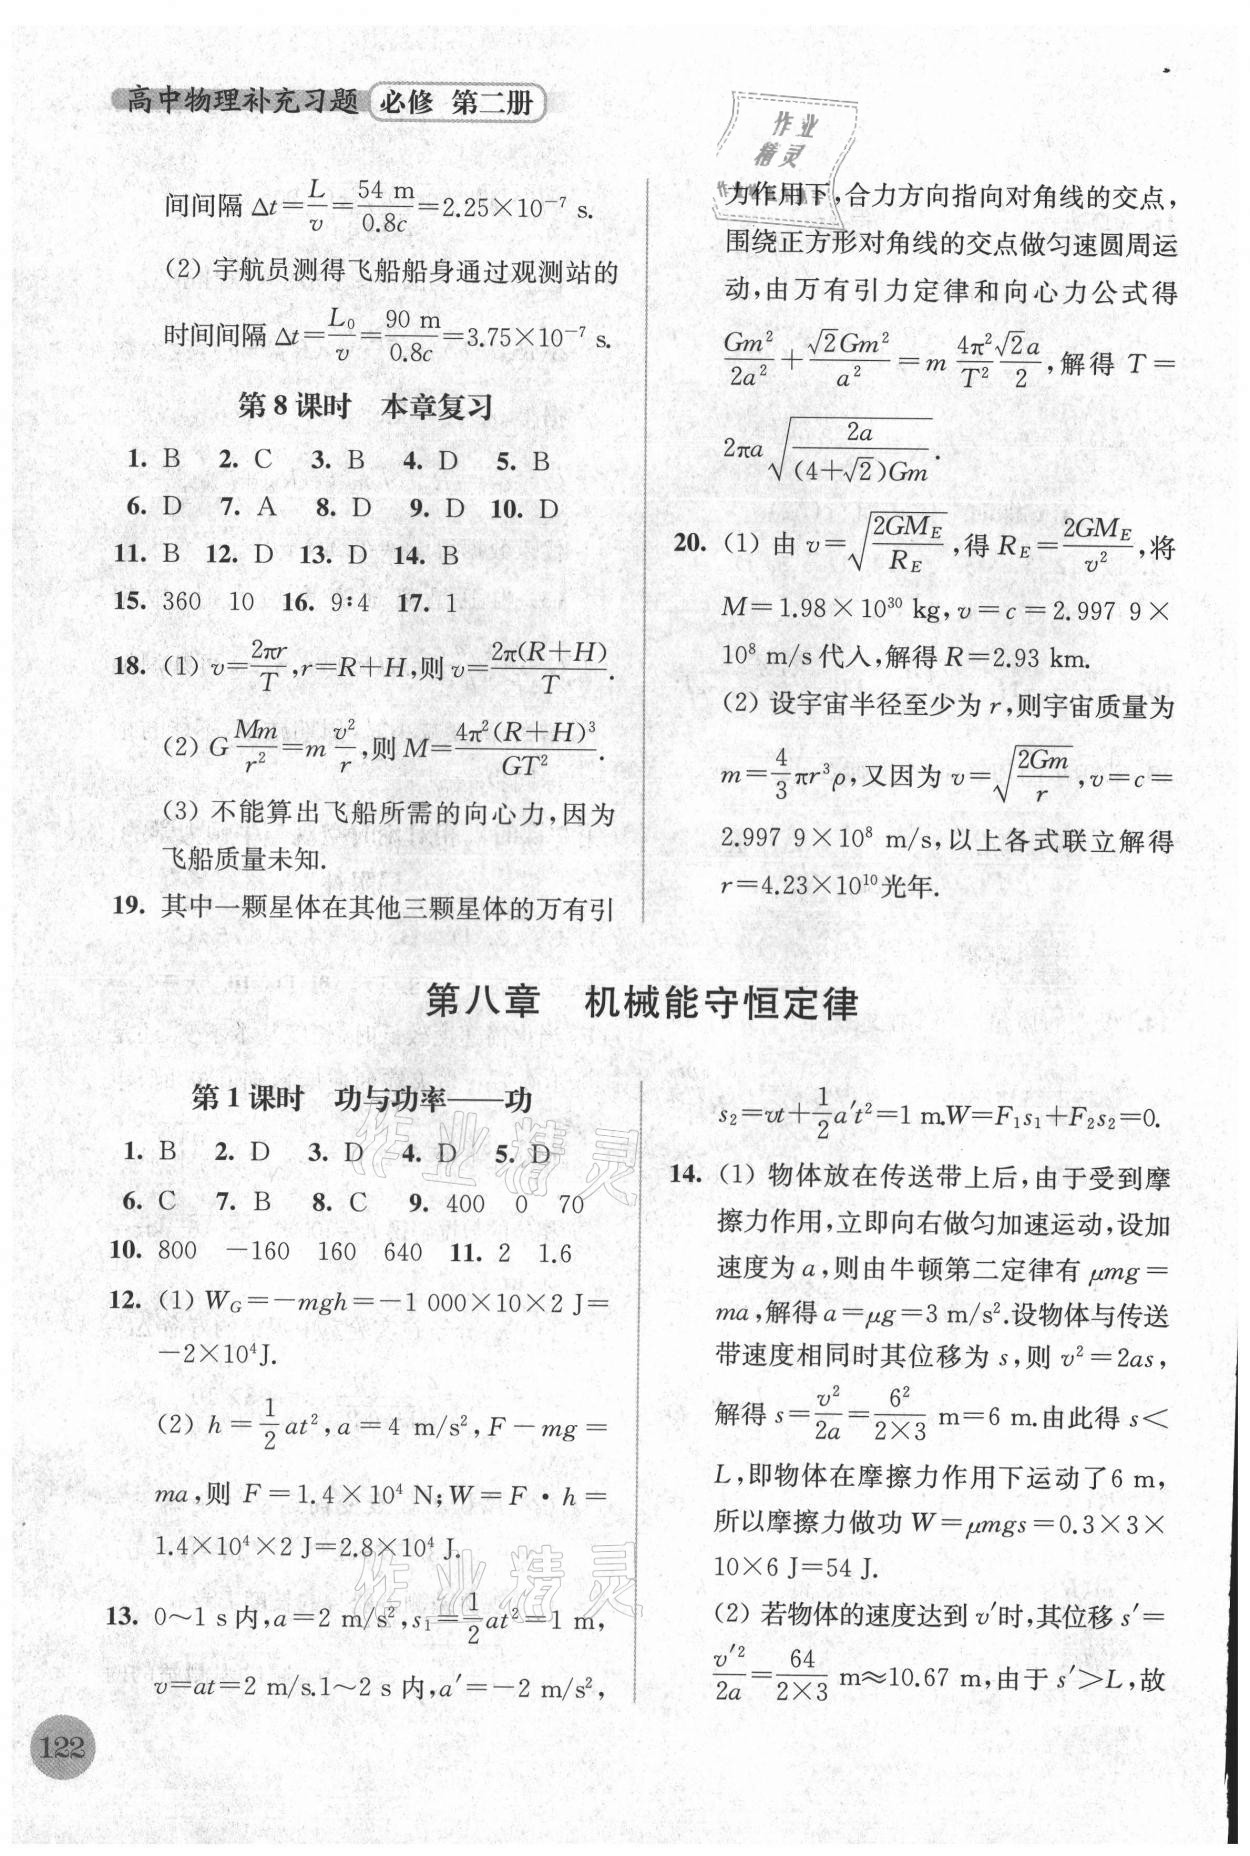 高中物理补充习题 必修 第二册
间间隔 Δt=L/v=54 m/0.8c=2.25×10⁻⁷ s.
(2) 宇航员测得飞船船身通过观测站的
时间间隔 Δt=L₀/v=90 m/0.8c=3.75×10⁻⁷ s.
第 8 课时 本章复习
1. B 2. C 3. B 4. D 5. B
6. D 7. A 8. D 9. D 10. D
11. B 12. D 13. D 14. B
15. 360 10 16. 9∶4 17. 1
18. (1) v=2πr/T,r=R+H,则 v=2π(R+H)/T.
(2) G Mm/r²=m v²/r,则 M=4π²(R+H)³/GT².
(3) 不能算出飞船所需的向心力,因为
飞船质量未知.
19. 其中一颗星体在其他三颗星体的万有引
作业
精灵
力作用下,合力方向指向对角线的交点,
围绕正方形对角线的交点做匀速圆周运
动,由万有引力定律和向心力公式得
Gm²/2a²+√2Gm²/a²=m 4π²/T² √2a/2,解得 T=
2πa√(2a/(4+√2)Gm).
20. (1) 由 v=√(2GM_E/R_E),得 R_E=2GM_E/v²,将
M=1.98×10³⁰ kg,v=c=2.997 9×
10⁸ m/s代入,解得 R=2.93 km.
(2) 设宇宙半径至少为 r,则宇宙质量为
m=4/3πr³ρ,又因为 v=√(2Gm/r),v=c=
2.997 9×10⁸ m/s,以上各式联立解得
r=4.23×10¹⁰光年.
第八章 机械能守恒定律
第 1 课时 功与功率——功
1. B 2. D 3. D 4. D 5. D
6. C 7. B 8. C 9. 400 0 70
10. 800 −160 160 640 11. 2 1.6
12. (1) W_G=−mgh=−1 000×10×2 J=
−2×10⁴J.
(2) h=1/2at²,a=4 m/s²,F−mg=
ma,则 F=1.4×10⁴ N;W=F·h=
1.4×10⁴×2 J=2.8×10⁴ J.
13. 0～1 s 内,a=2 m/s²,s₁=1/2at²=1 m,
v=at=2 m/s.1～2 s 内,a′=−2 m/s²,
s₂=vt+1/2a′t²=1 m.W=F₁s₁+F₂s₂=0.
14. (1) 物体放在传送带上后,由于受到摩
擦力作用,立即向右做匀加速运动,设加
速度为 a,则由牛顿第二定律有 μmg=
ma,解得 a=μg=3 m/s².设物体与传送
带速度相同时其位移为 s,则 v²=2as,
解得 s=v²/2a=6²/2×3 m=6 m.由此得 s<
L,即物体在摩擦力作用下运动了6 m,
所以摩擦力做功 W=μmgs=0.3×3×
10×6 J=54 J.
(2) 若物体的速度达到 v′时,其位移 s′=
v′²/2a=64/2×3 m≈10.67 m,由于 s′>L,故
作业精灵
作业精灵
122